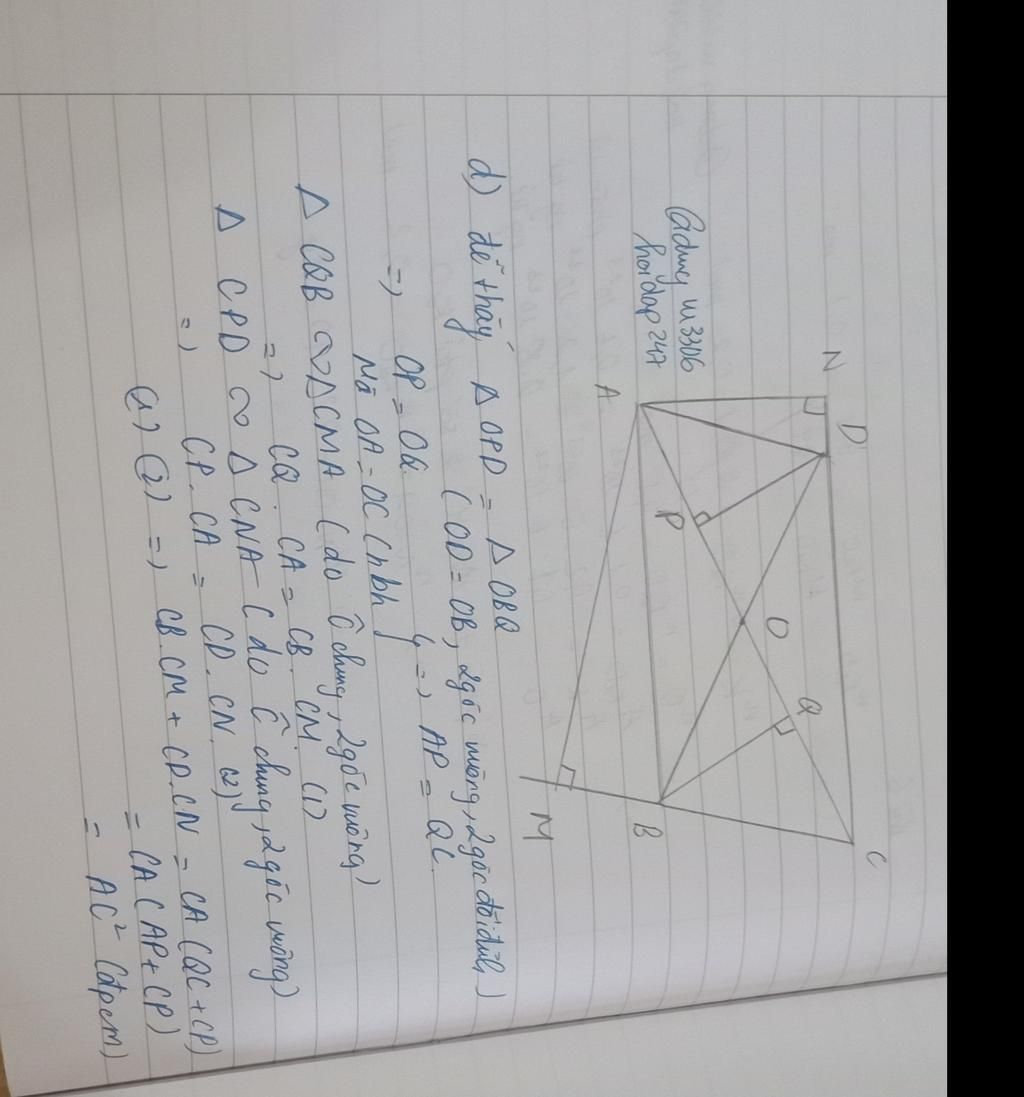 N
D
O
Q
C
A
P
B
M
hoidap247
d) dễ thấy ΔOPD = ΔOBQ
(OD = OB, 2 góc vuông, 2 góc đối đỉnh)
=> OP = OQ
Mà OA = OC (hbh) } => AP = QC
Δ CQB ∽ Δ CMA (do Ĉ chung, 2 góc vuông)
=> CQ. CA = CB. CM (1)
Δ CPD ∽ Δ CNA (do Ĉ chung, 2 góc vuông)
=> CP. CA = CD. CN (2)
(1) (2) => CB.CM + CD.CN = CA (QC + CP)
= CA (AP + CP)
= AC² (đpcm)